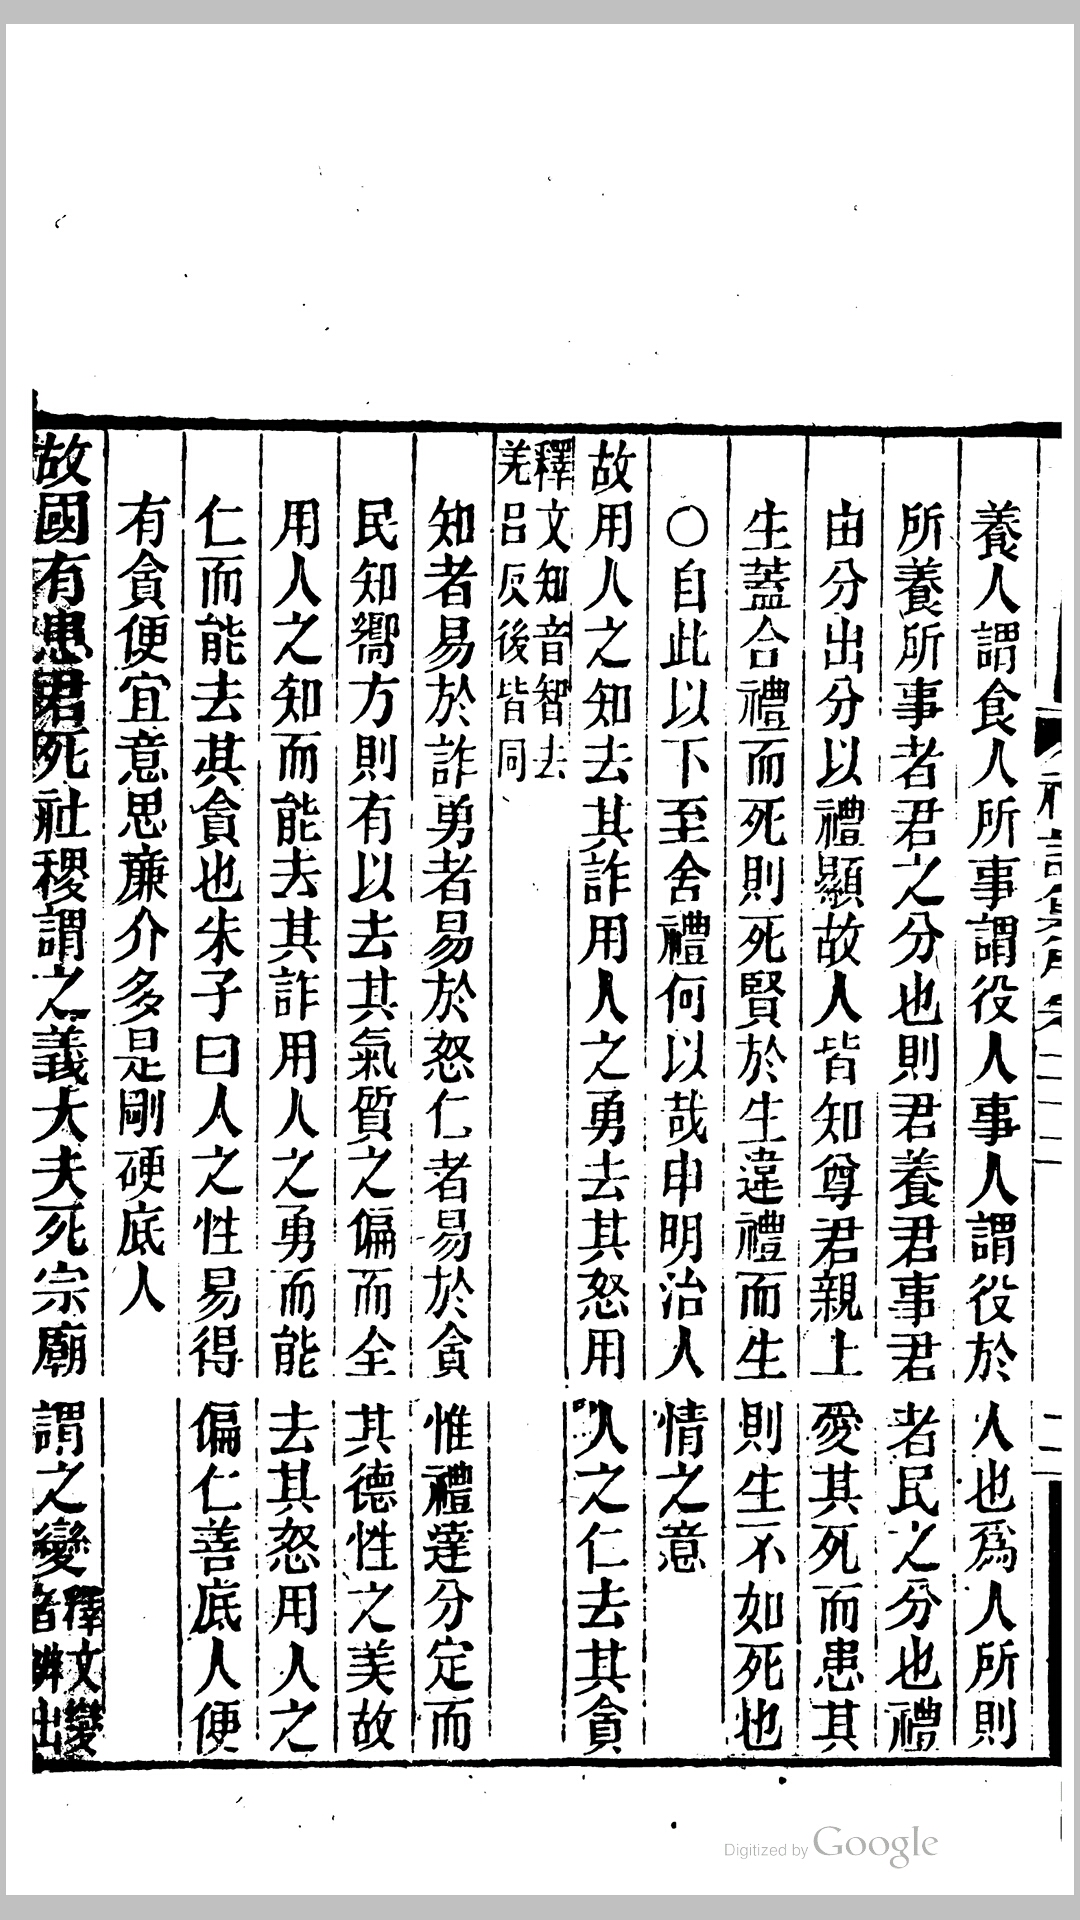 養人謂食人所事謂役人事人謂役於人也爲人所則
所養所事者君之分也則君養君事君者民之分也禮
由分出分以禮顯故人皆知尊君親上愛其死而患其
生蓋合禮而死則死賢於生違禮而生則生不如死也
○自此以下至舍禮何以哉申明治人情之意
故用人之知去其詐用人之勇去其怒用人之仁去其貪
釋文知音智去
羌呂反後皆同
知者易於詐勇者易於怒仁者易於貪惟禮達分定而
民知嚮方則有以去其氣質之偏而全其德性之美故
用人之知而能去其詐用人之勇而能去其怒用人之
仁而能去其貪也朱子曰人之性易得偏仁善底人便
有貪便宜意思廉介多是剛硬底人
故國有患君死社稷謂之義大夫死宗廟謂之變釋文變
音辯出
Digitized by Google